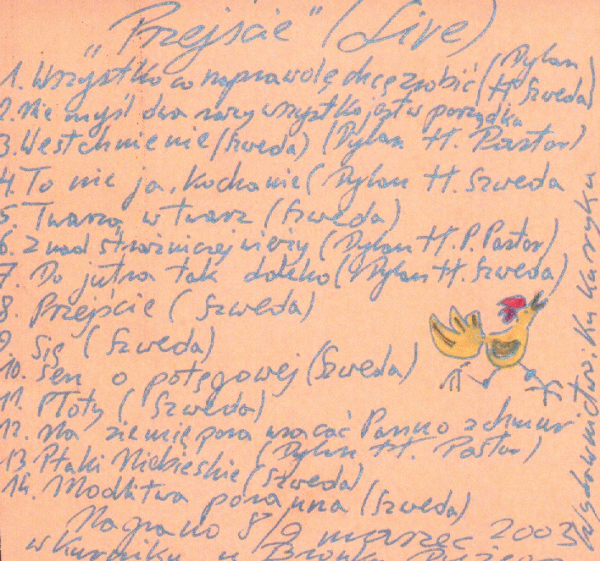 „Przejście” (Live)
1. Wszystko co naprawdę chcę zrobić (Dylan
H Szweda)
2. Nie myśl dwa razy wszystko jest w porządku
(Dylan H. Pastor)
3. Westchnienie (Szweda)
4. To nie ja, Kochanie (Dylan H. Szweda
5. Twarzą w twarz (Szweda)
6. Znad strażniczej wieży (Dylan H. P. Pastor)
7. Do jutra tak daleko (Dylan H. Szweda)
8. Przejście (Szweda)
9. Się (Szweda)
10. Sen o potęgowej (Szweda)
11. Płoty (Szweda)
12. Na ziemię pora wracać Panno z chmur
(Dylan H. Pastor)
13. Ptaki Niebieskie (Szweda)
14. Modlitwa poranna (Szweda)
Nagrano 8/9 marzec 2003
w Kurniku u Bronka
Wydawnictwo